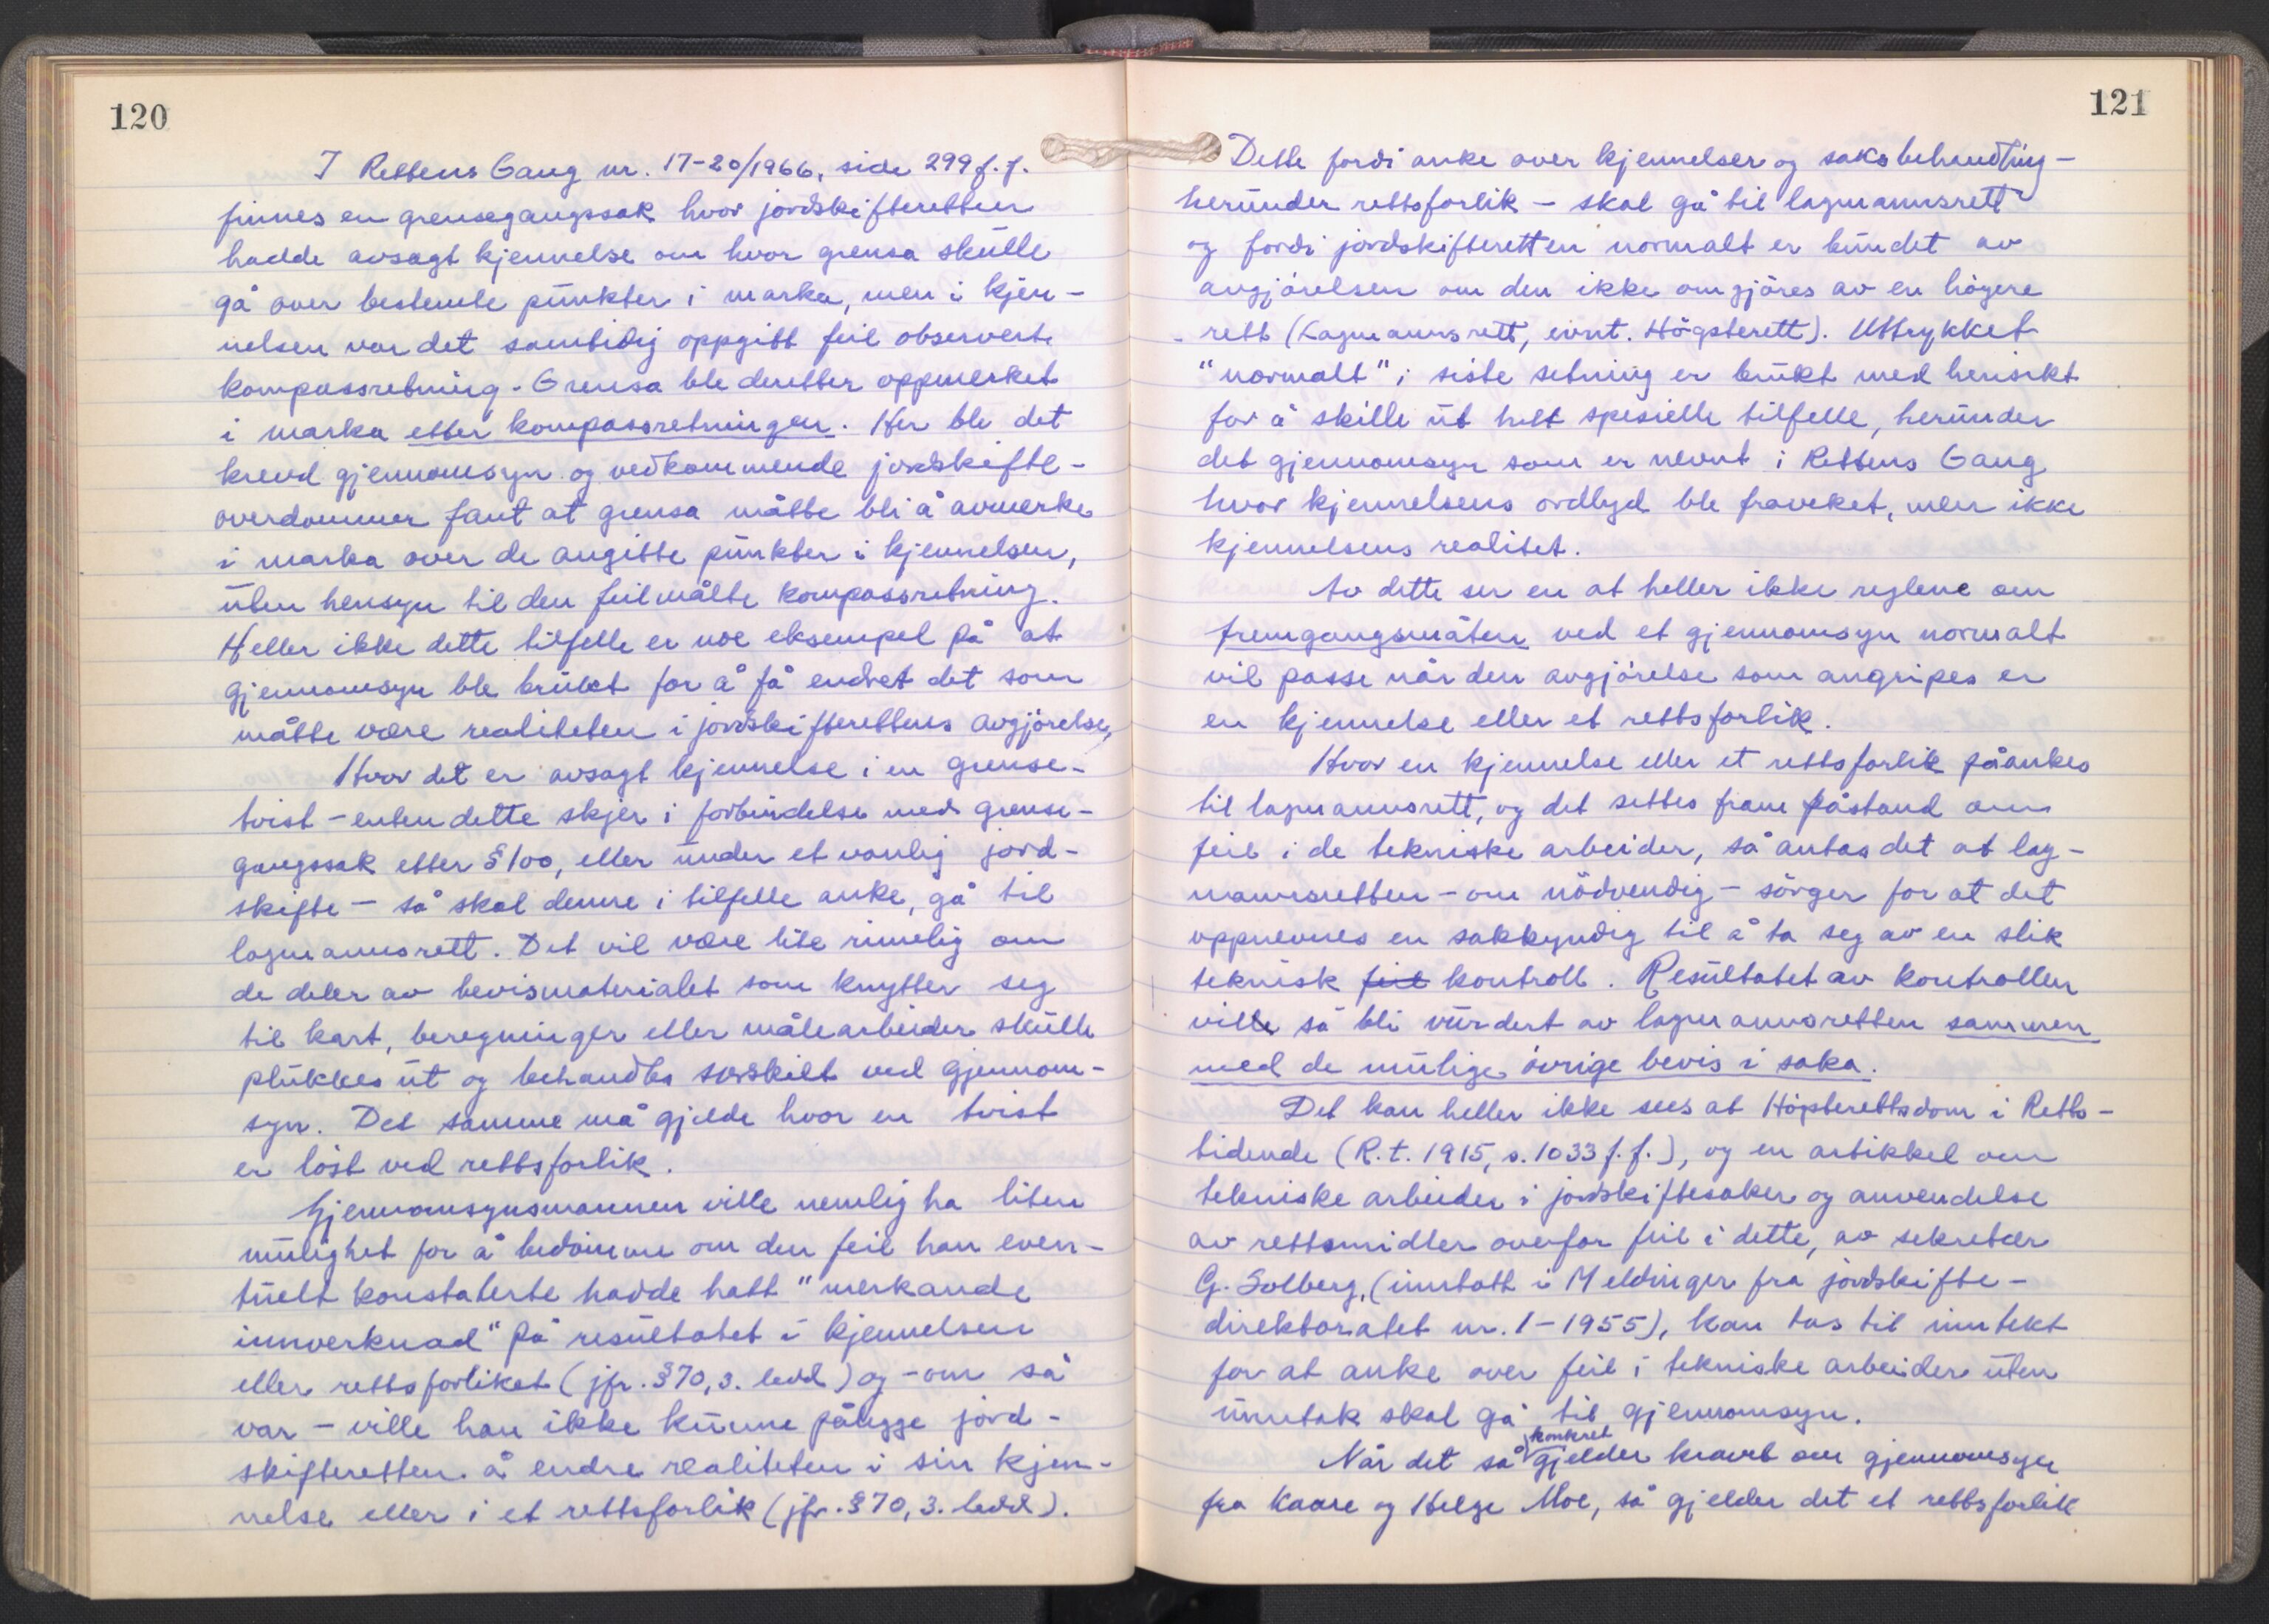 120
I Rettens Gang nr. 17-20/1966, side 299 f.f.
finnes en grensegangssak hvor jordskifteretten
hadde avsagt kjennelse om hvor grensa skulle
gå over bestemte punkter i marka, men i kjen-
nelsen var det samtidig oppgitt feil observert
kompassretning. Grensa ble deretter oppmerket
i marka etter kompassretningen. Her ble det
krevd gjennomsyn og vedkommende jordskifte-
overdommer fant at grensa måtte bli å avmerke
i marka over de angitte punkter i kjennelsen,
uten hensyn til den feilmålte kompassretning.
Heller ikke dette tilfelle er noe eksempel på at
gjennomsyn ble brukt for å få endret det som
måtte være realiteten i jordskifterettens avgjörelse,
Hvor det er avsagt kjennelse i en grense-
tvist - enten dette skjer i forbindelse med grense-
gangssak etter § 100, eller under et vanlig jord-
skifte - så skal denne i tilfelle anke, gå til
lagmannsrett. Det vil være lite rimelig om
de deler av bevismaterialet som knytter seg
til kart, beregninger eller målearbeider skulle
plukkes ut og behandles særskilt ved gjennom-
syn. Det samme må gjelde hvor en tvist
er löst ved rettsforlik.
Gjennomsynsmannen ville nemlig ha liten
mulighet for å bedömme om den feil han even-
tuelt konstaterte hadde hatt "merkande
innverknad" på resultatet i kjennelsen
eller rettsforliket (jfr. § 70, 3. ledd) og - om så
var - ville han ikke kunne pålegge jord-
skifteretten å endre realiteten i sin kjen-
nelse eller i et rettsforlik (jfr. § 70, 3. ledd).
121
Dette fordi anke over kjennelser og saksbehandling -
herunder rettsforlik - skal gå til lagmannsrett
og fordi jordskifteretten normalt er bundet av
avgjörelsen om den ikke omgjöres av en högere
rett (Lagmannsrett, evnt. Högsterett). Uttrykket
"normalt" i siste setning er brukt med hensikt
for å skille ut helt spesielle tilfelle, herunder
det gjennomsyn som er nevnt i Rettens Gang
hvor kjennelsens ordlyd ble fraveket, men ikke
kjennelsens realitet.
Av dette ser en at heller ikke reglene om
fremgangsmåten ved et gjennomsyn normalt
vil passe når den avgjörelse som angripes er
en kjennelse eller et rettsforlik.
Hvor en kjennelse eller et rettsforlik påankes
til lagmannsrett, og det settes fram påstand om
feil i de tekniske arbeider, så antas det at lag-
mannsretten - om nödvendig - sörger for at det
oppnevnes en sakkyndig til å ta seg av en slik
teknisk feil kontroll. Resultatet av kontrollen
ville så bli vurdert av lagmannsretten sammen
med de mulige övrige bevis i saka.
Det kan heller ikke sees at Högsterettsdom i Retts-
tidende (R.t. 1915, s. 1033 f.f.), og en artikkel om
tekniske arbeider i jordskiftesaker og anvendelse
av rettsmidler overfor feil i dette, av sekretær
G. Solberg, (inntatt i Meldinger fra jordskifte-
direktoratet nr. 1-1955), kan tas til inntekt
for at anke over feil i tekniske arbeider uten
unntak skal gå til gjennomsyn.
konkret
Når det så gjelder kravet om gjennomsyn
fra Kaare og Helge Moe, så gjelder det et rettsforlik